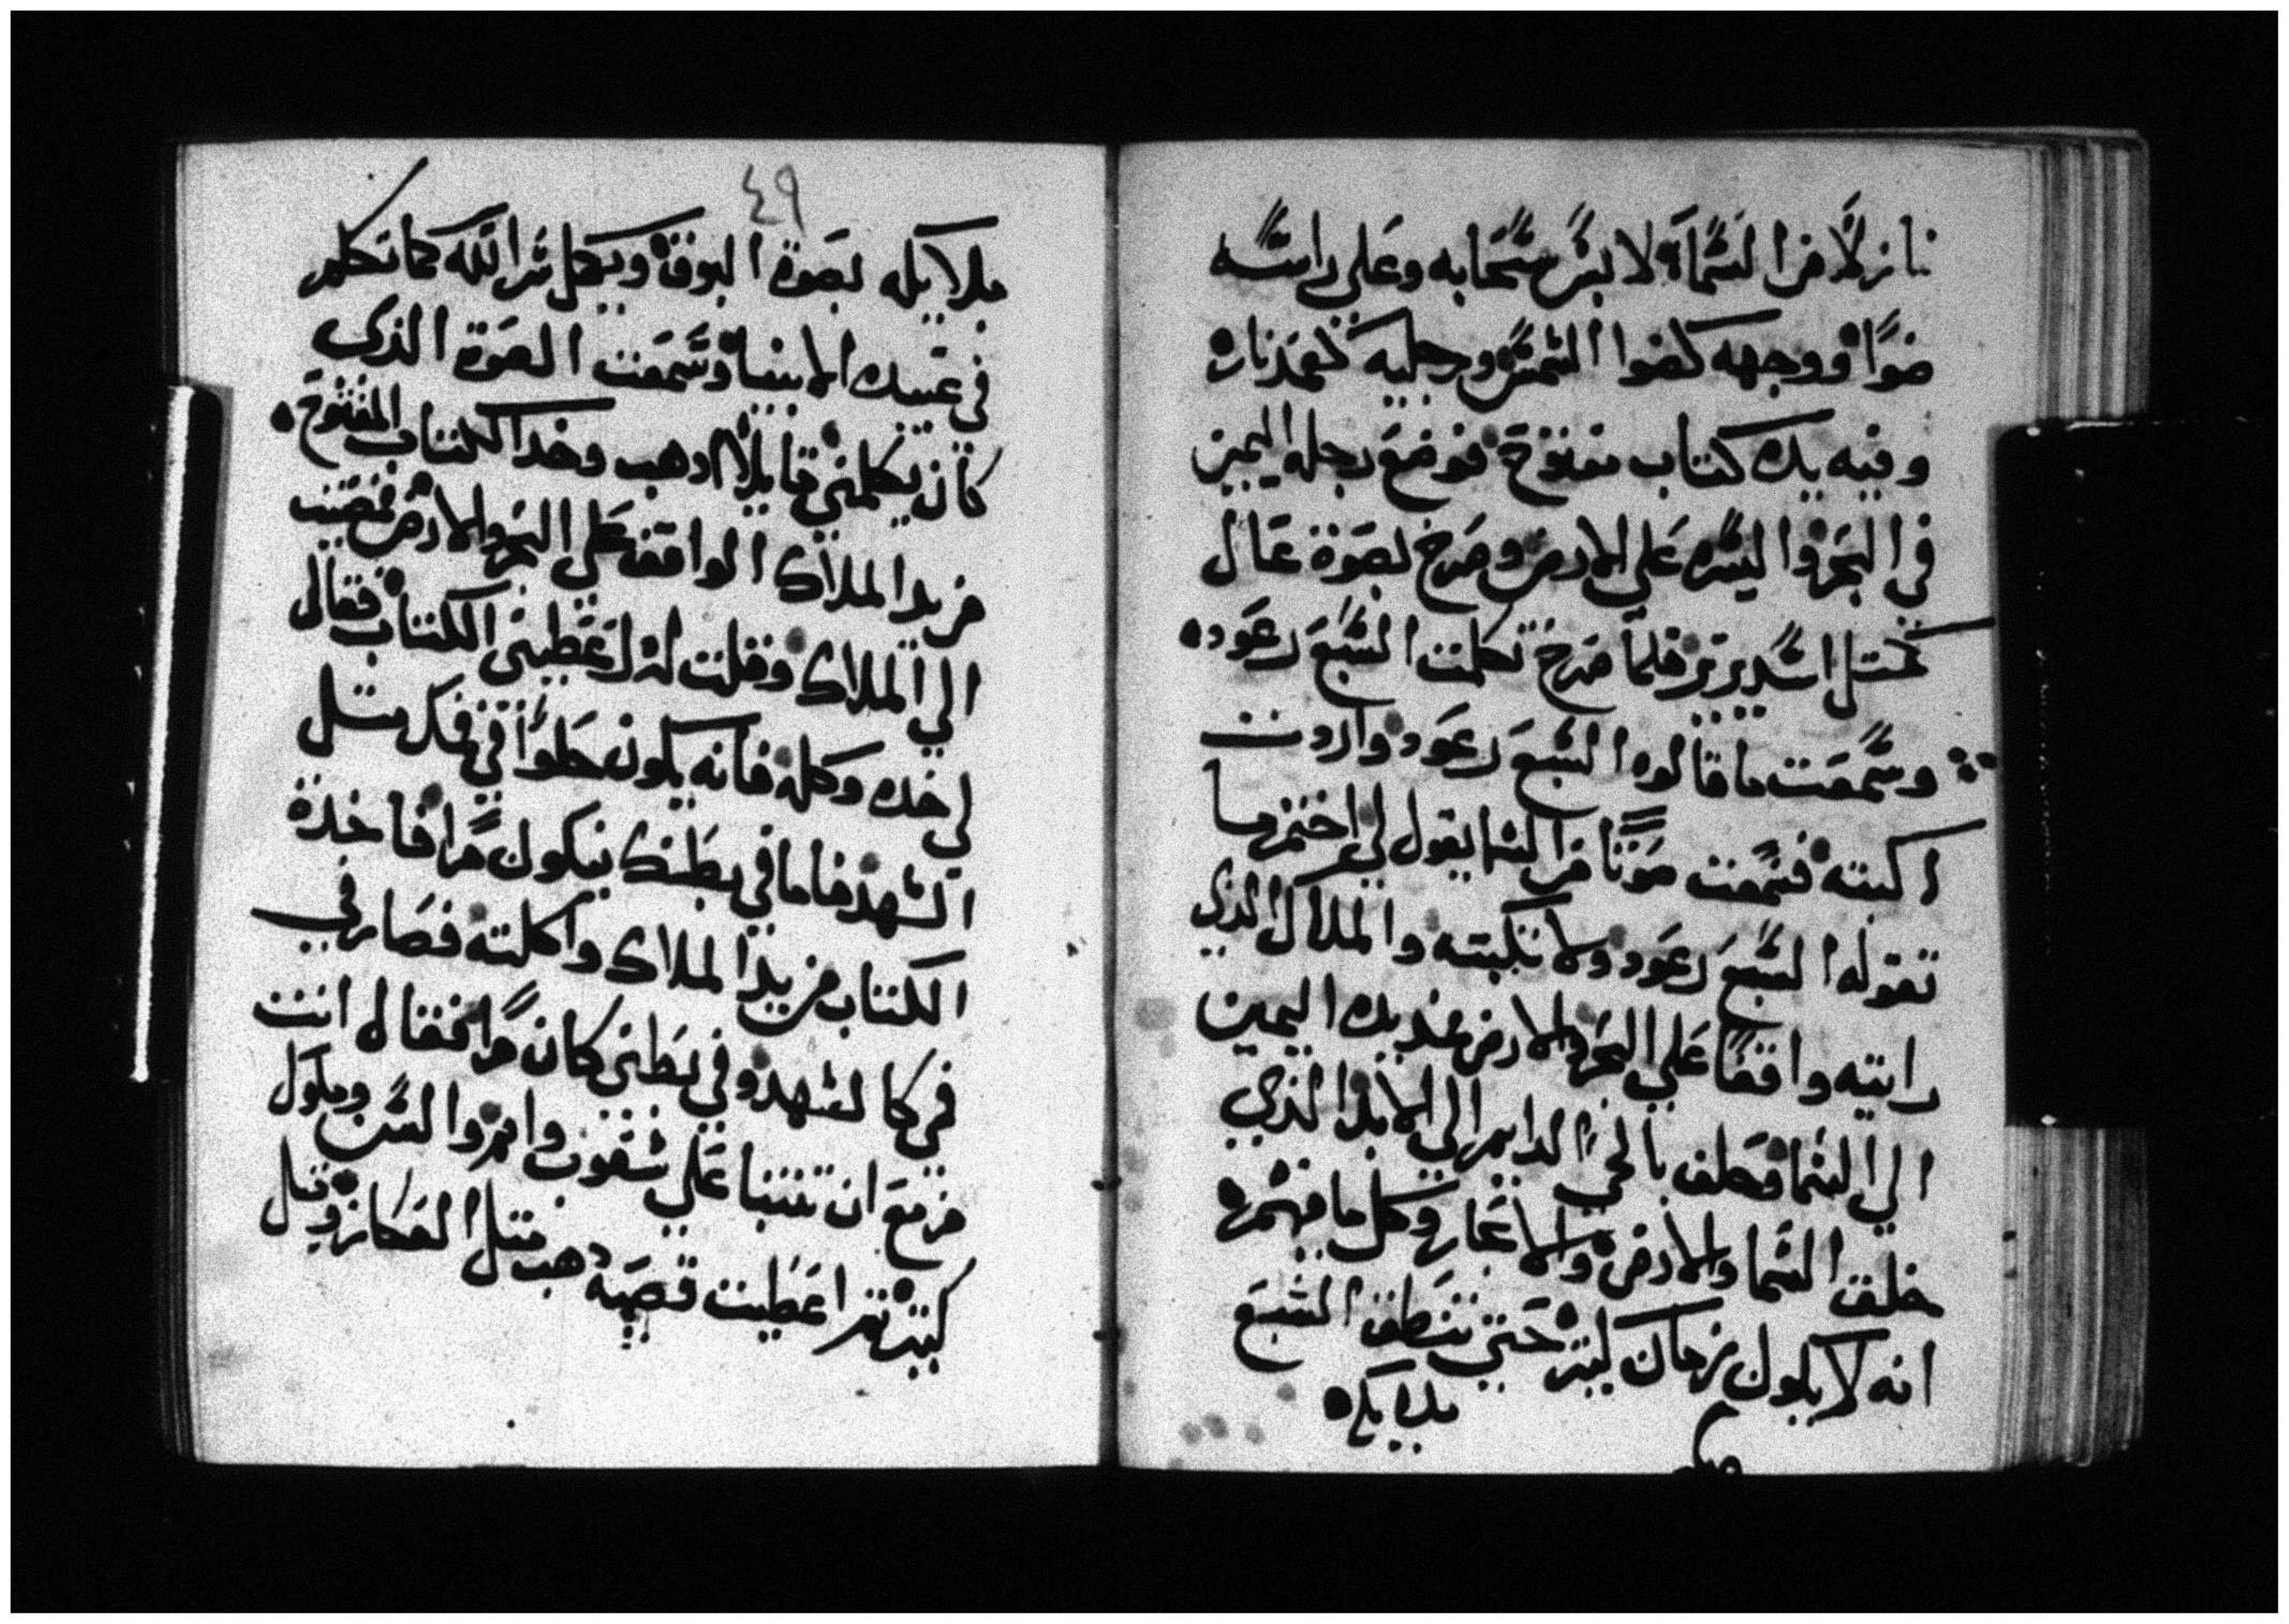 نازلا من السما لابس سحابه وعلى راسه
ضوا ووجهه كضوا الشمس ورجليه كعمد نار
وفيه يده كتاب مفتوح فوضع رجله اليمين
في البحر واليسره علي الارض وصرخ بصوة عال
كمتل اسد يزيز فلما صرخ تكلمت السبع رعود
وسمعت ما قالوه السبع رعود واردت
اكبته فسمعت صوتا من السما يقول لي اختم ما
تقوله السبع رعود ولا تكبته والملاك الذي
رايته واقفا علي البحر والارض مد يده اليمين
الي السما فحلف بالحي الدايم الي الابد الذي
خلق السما والارض والابحار وكل ما فيهم
انه لا يكون زمان كبير حتي ينطق السبع
ملايكه
٤٩
ملايكه بصوة البوق ويكمل سر الله كما تكلم
في عبيده الانبيا وسمعت الصوة الذي
كان يكلمني قايلا ادهب وخد الكتاب المفتوح
من يد الملاك الواقف علي البحر والارض فمضيت
الي الملاك وقلت له اعطيني الكتاب فقال
لي خده وكله فانه يكون حلوا في فمك متل
الشهد فاما في بطنك يكون مرا فاخدة
الكتاب من يد الملاك واكلته فصار في
في كالشهد وفي بطني كان مرا فقال انت
مزمع ان تتنبا علي شعوب وامم والسن وملوك
كبير تم اعطيت قصبه دهب متل العكاز وقيل